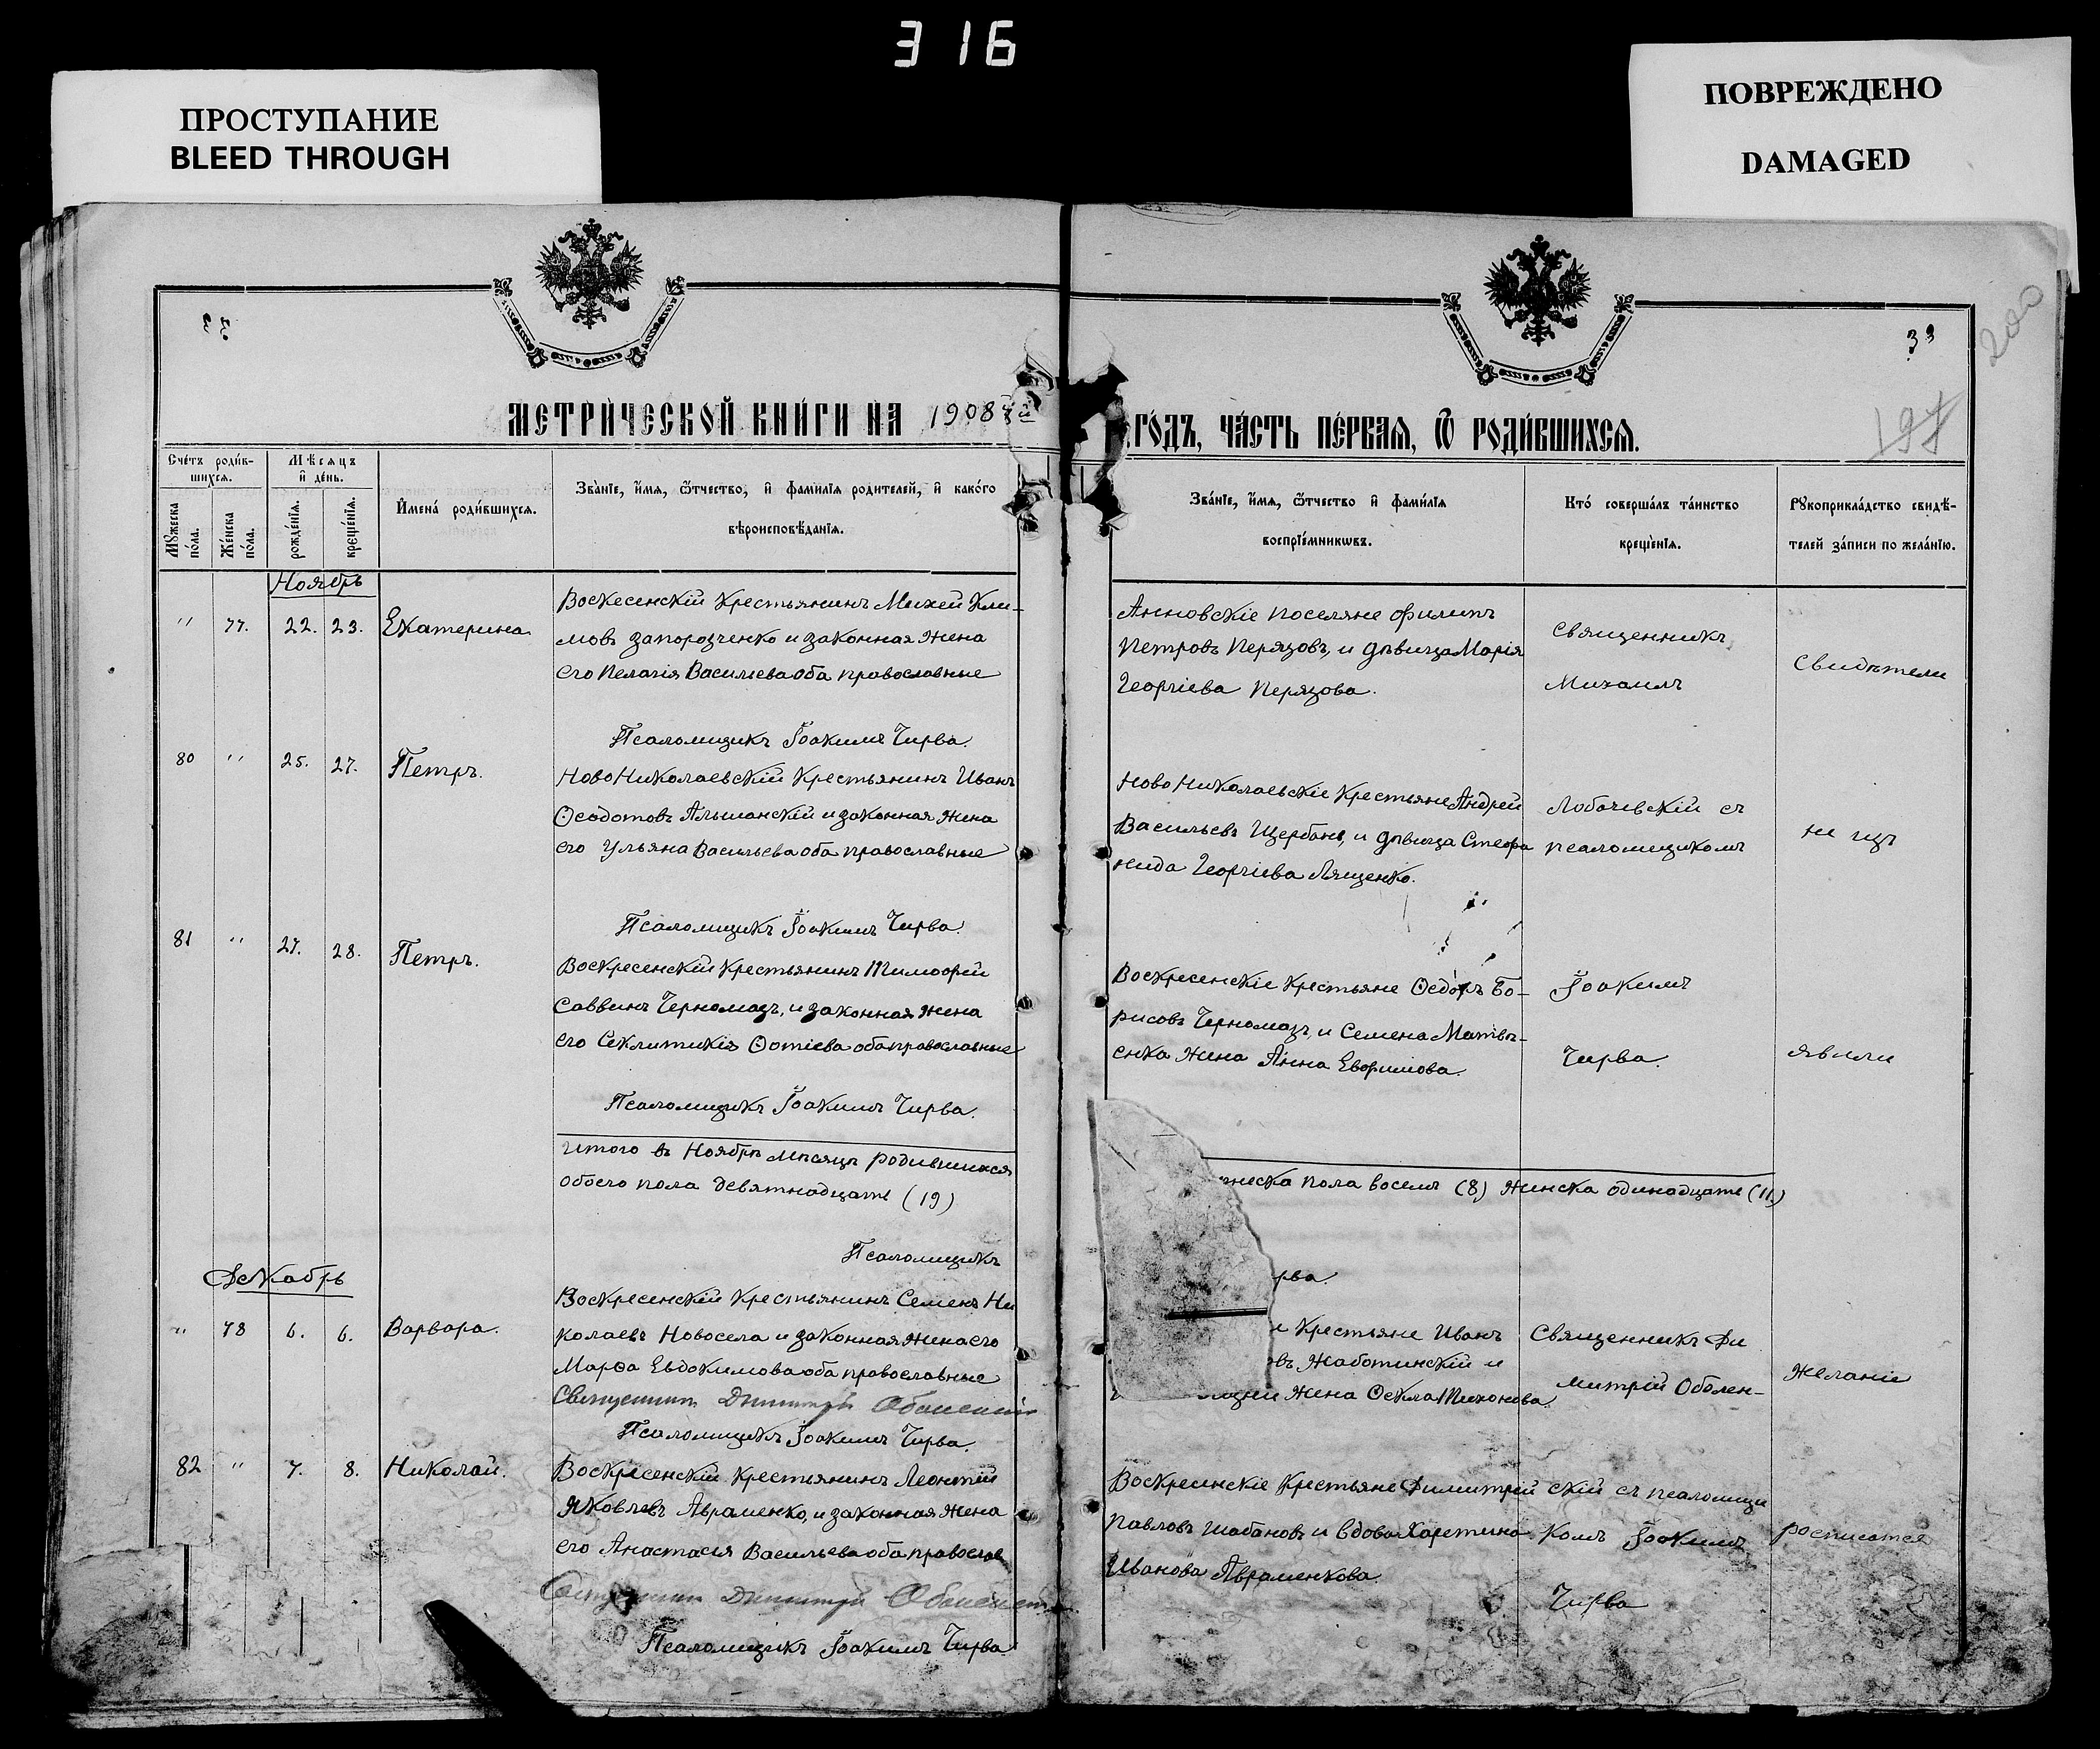 316
ПРОСТУПАНИЕ
BLEED THROUGH
ПОВРЕЖДЕНО
DAMAGED
200
33
197
МЕТРИЧЕСКОЙ КНИГИ НА 1908й
ГОДЪ, ЧАСТЬ ПЕРВАЯ, Ѿ РОДИВШИХСЯ.
Счетъ родив-
шихся.
Мѣсяцъ
и день.
Мужеска пола.
Женска пола.
рожденія.
крещенія.
Имена родившихся.
Званіе, имя, ѿчество, и фамилія родителей, и какого
вѣроисповѣданія.
Званіе, имя, ѿчество и фамилія
воспріемникѡвъ.
Кто совершалъ таинство
крещенія.
Рукоприкладство свидѣ-
телей записи по желанію.
Ноябрь
" 77. 22. 23. Екатерина
Воскесенскій крестьянинъ Михей Кли-
мовъ Запорозченко и законная жена
его Пелагія Васильева оба православные
Псаломщикъ Іоакимъ Чирва.
Анновскіе поселяне Филипъ
Петровъ Перязовъ, и дѣвица Марія
Георгіева Перязова.
Священникъ
Михаилъ
Свидѣтели
80 " 25. 27. Петръ.
Ново Николаевскій крестьянинъ Иванъ
Ѳеодотовъ Альшанскій и законная жена
его Ульяна Васильева оба православные
Псаломщикъ Іоакимъ Чирва.
Ново Николаевскіе крестьяне Андрей
Васильевъ Щербань, и дѣвица Стефа
нида Георгіева Лященко.
Лобачевскій съ
псаломщикомъ
не изъ
81 " 27. 28. Петръ.
Воскресенскій крестьянинъ Тимофей
Саввинъ Черномазъ, и законная жена
его Секлитикія Фотіева оба православные
Псаломщикъ Іоакимъ Чирва.
Воскресенскіе крестьяне Ѳедоръ Бо-
рисовъ Черномазъ, и Семена Матвѣ-
енка жена Анна Евфимова.
Іоакимъ
Чирва.
явили
Итого въ Ноябрѣ мѣсяцѣ родившихся
обоего пола девятнадцать (19)
Псаломщикъ
жеска пола восемь (8) женска одинадцать (11.)
рва.
Декабрь
" 78 6. 6. Варвара.
Воскресенскій крестьянинъ Семенъ Ни
колаевъ Новосела и законная жена его
Марѳа Евдокимова оба православные
Священникъ Димитрій Оболенскій
Псаломщикъ Іоакимъ Чирва.
и крестьяне Иванъ
овъ Жаботинскій и
жена Ѳекла Тихонова.
Священникъ Ди
митрій Оболен-
желаніе
82 " 7. 8. Николай.
Воскресенскій крестьянинъ Леонтій
Яковлевъ Авраменко, и законная жена
его Анастасія Васильева оба православ
Священникъ Димитрій Оболенскій
Псаломщикъ Іоакимъ Чирва
Воскресенскіе крестьяне Димитрій
Павловъ Шабановъ и вдова Харетина
Иванова Авраменкова.
скій съ псаломщи
комъ Іоакимъ
Чирва
росписатся